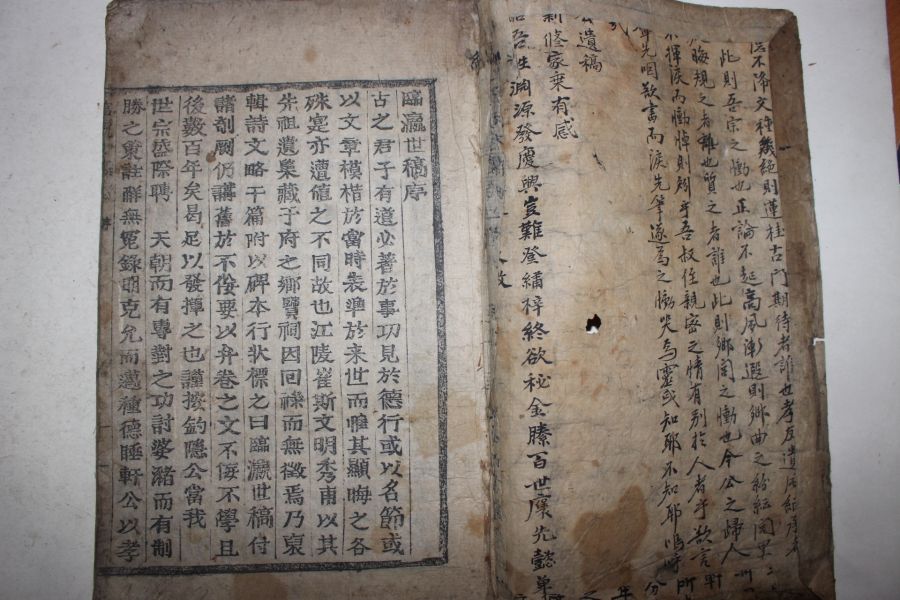 不降文種幾絶則蓮桂古門期待者誰也孝友遺風
此則吾宗之慟也正論不起高風漸遐則鄉曲之紛紜
晦規之者誰也質之者誰也此則鄉閭之慟也今公之歸人
不揮淚而慟悼則矧乎吾叔侄親密之情有別於人者乎欲言
先咽欲書而淚先筆遂爲之慟哭焉靈或知耶不知耶嗚呼
遺稿
新修家乘有感
吾姓淵源發慶興豈難登繡梓終欲秘金縢百世先懿單
臨瀛世稿序
古之君子有道必著於事功見於德行或以名節或
以文章模楷於當時裝準於来世而惟其顯晦之各
殊寔亦遭値之不同故也江陵崔斯文明秀甫以其
先祖遺藁藏于府之鄉賢祠因回祿而無徵焉乃裒
輯詩文略干篇附以碑本行狀標之曰臨瀛世稿付
諸剞劂仍講舊於不佞要以弁卷之文不佞不學且
後數百年矣曷足以發揮之也謹按釣隱公當我
世宗盛際聘 天朝而有專對之功討婆瀦而有制
勝之策註辭無冤錄明克允而邁種德睡軒公以孝